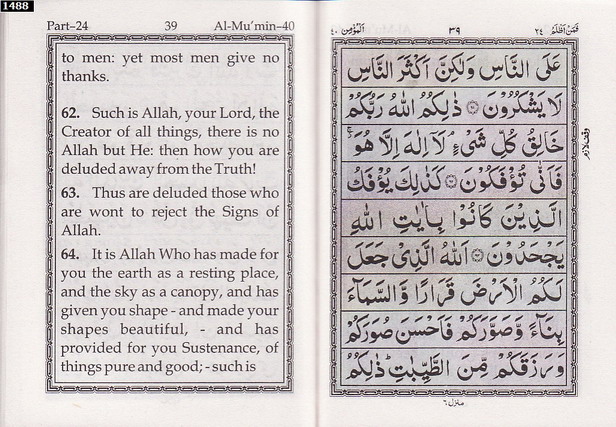 1488
Part–24 39 Al-Mu’min–40
to men: yet most men give no
thanks.
62. Such is Allah, your Lord, the
Creator of all things, there is no
Allah but He: then how you are
deluded away from the Truth!
63. Thus are deluded those who
are wont to reject the Signs of
Allah.
64. It is Allah Who has made for
you the earth as a resting place,
and the sky as a canopy, and has
given you shape - and made your
shapes beautiful, - and has
provided for you Sustenance, of
things pure and good; - such is
فَمَنْ اَظْلَمُ ٢٤ ٣٩ اَلْمُؤْمِن ٤٠
عَلَى النَّاسِ وَلٰكِنَّ اَكْثَرَ النَّاسِ
لَا يَشْكُرُوْنَ ۝ ذٰلِكُمُ اللّٰهُ رَبُّكُمْ
خَالِقُ كُلِّ شَيْءٍ ۘ لَاۤ اِلٰهَ اِلَّا هُوَ ۚ
فَاَنّٰى تُؤْفَكُوْنَ ۝ كَذٰلِكَ يُؤْفَكُ
الَّذِيْنَ كَانُوْا بِاٰيٰتِ اللّٰهِ
يَجْحَدُوْنَ ۝ اَللّٰهُ الَّذِيْ جَعَلَ
لَكُمُ الْاَرْضَ قَرَارًا وَّالسَّمَآءَ
بِنَآءً وَّصَوَّرَكُمْ فَاَحْسَنَ صُوَرَكُمْ
وَرَزَقَكُمْ مِّنَ الطَّيِّبٰتِ ؕ ذٰلِكُمُ
وقف لازم
منزل ٦